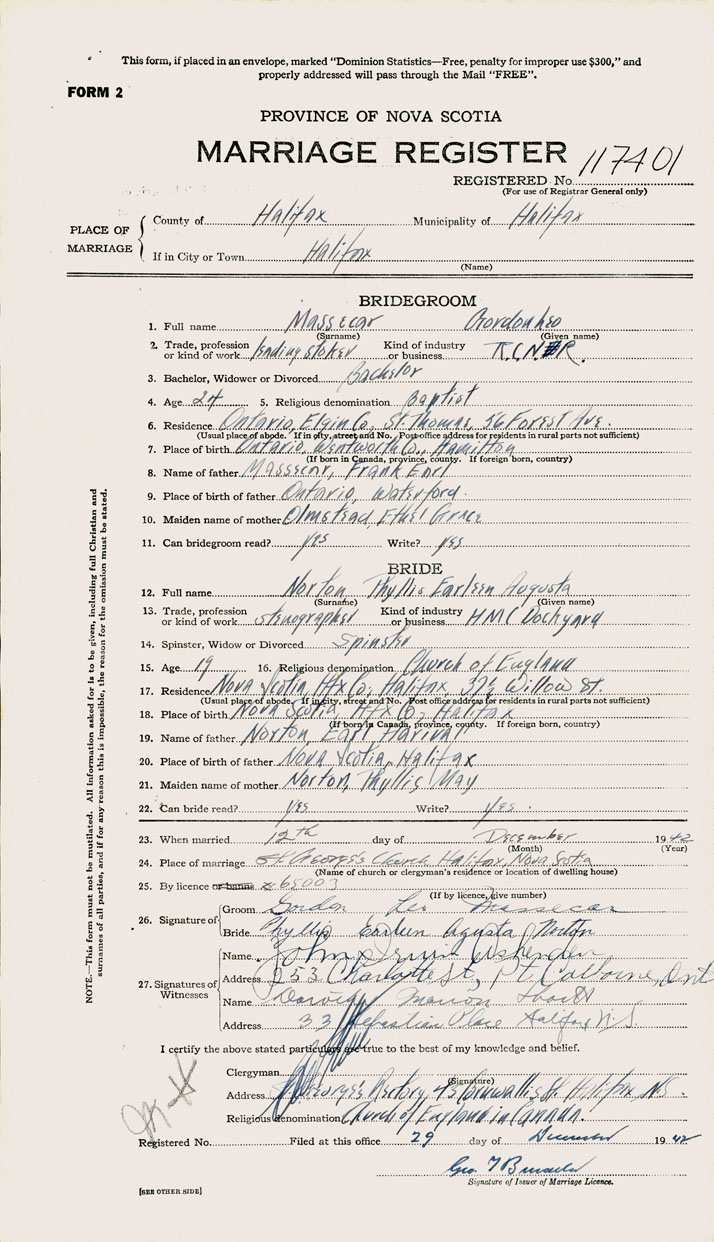 This form, if placed in an envelope, marked "Dominion Statistics—Free, penalty for improper use $300," and
properly addressed will pass through the Mail "FREE".
FORM 2
PROVINCE OF NOVA SCOTIA
MARRIAGE REGISTER
REGISTERED No. 117401
(For use of Registrar General only)
PLACE OF MARRIAGE
County of Halifax Municipality of Halifax
If in City or Town Halifax
(Name)
BRIDEGROOM
1. Full name Massecar Gordon Leo
(Surname) (Given name)
2. Trade, profession or kind of work leading stoker Kind of industry or business R.C.N.R.
3. Bachelor, Widower or Divorced Bachelor
4. Age 24 5. Religious denomination Baptist
6. Residence Ontario, Elgin Co, St. Thomas, 56 Forest Ave.
(Usual place of abode. If in city, street and No. Post office address for residents in rural parts not sufficient)
7. Place of birth Ontario, Wentworth Co., Hamilton
(If born in Canada, province, county. If foreign born, country)
8. Name of father Massecar, Frank Earl
9. Place of birth of father Ontario, Waterford.
10. Maiden name of mother Olmstead, Ethel Grace
11. Can bridegroom read? yes Write? yes
BRIDE
12. Full name Norton Phyllis Earleen Augusta
(Surname) (Given name)
13. Trade, profession or kind of work stenographer Kind of industry or business HMC Dockyard
14. Spinster, Widow or Divorced Spinster
15. Age 19 16. Religious denomination Church of England
17. Residence Nova Scotia, Hfx Co, Halifax, 37½ Willow St.
(Usual place of abode. If in city, street and No. Post office address for residents in rural parts not sufficient)
18. Place of birth Nova Scotia, Hfx Co, Halifax
(If born in Canada, province, county. If foreign born, country)
19. Name of father Norton, Earl
20. Place of birth of father Nova Scotia, Halifax
21. Maiden name of mother Norton, Phyllis May
22. Can bride read? yes Write? yes.
23. When married 12th day of December 1942
(Month) (Year)
24. Place of marriage St George's Church Halifax, Nova Scotia
(Name of church or clergyman's residence or location of dwelling house)
25. By licence or banns 65003
(If by licence, give number)
26. Signature of
Groom Gordon Leo Massecar
Bride Phyllis Earleen Augusta Norton
27. Signatures of Witnesses
Name John
Address 253 Charlotte St, Pt Colborne, Ont
Name Marion
Address 33 Sebastian Place Halifax N.S.
I certify the above stated particulars are true to the best of my knowledge and belief.
Clergyman
(Signature)
Address St George's Rectory, Cornwallis St. Halifax, NS.
Religious denomination Church of England in Canada.
Registered No. Filed at this office 29 day of December 1942
Geo.
Signature of Issuer of Marriage Licence.
[SEE OTHER SIDE]
NOTE.—This form must not be mutilated. All information asked for is to be given, including full Christian and
surnames of all parties, and if for any reason this is impossible, the reason for the omission must be stated.